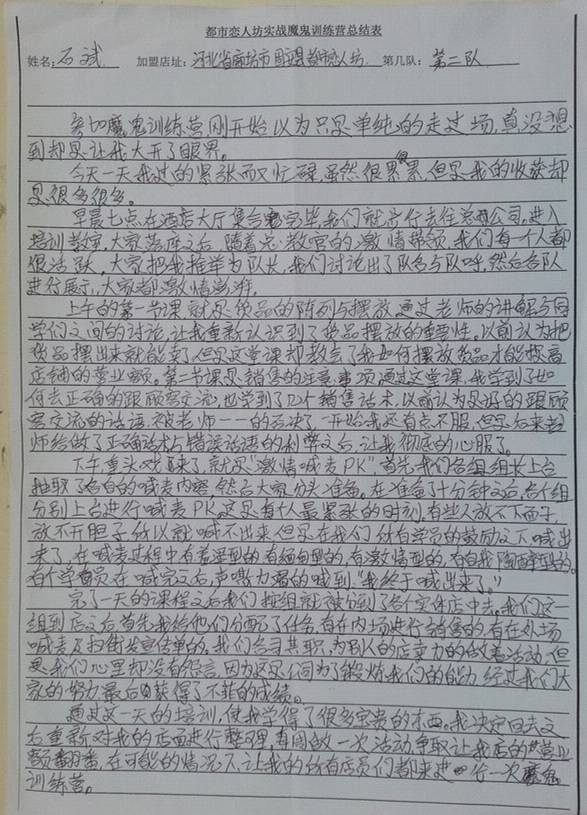 都市恋人坊实战魔鬼训练营总结表
姓名:石斌 加盟店址:河北省廊坊市固安县都市恋人坊 第几队:第二队
参加魔鬼训练营,刚开始以为只是单纯的走过场,真没想
到却是让我大开了眼界。
今天一天我过的紧张而又忙碌,虽然很累很累,但是我的收获却
是很多很多。
早晨七点在酒店大厅集合完毕我们就步行去往总公司,进入
培训教室,大家落座之后,随着教官的激情带领,我们每一个人都
很活跃,大家把我推举为队长,我们讨论出了队名与队呼,然后各队
进行展示,大家都激情澎湃。
上午的第一节课就是货品的陈列与摆放,通过老师的讲解与同
学们之间的讨论,让我重新认识到了货品摆放的重要性。以前认为把
货品摆出来就能卖了,但是这堂课却教会了我如何摆放货品才能提高
店铺的营业额。第二节课是销售的注意事项通过这堂课,我学到了如
何去正确的跟顾客交流,也学到了几个销售话术,以前认为是好的跟顾
客交流的话语,被老师一一的否决了,开始我还有点不服,但是后来老
师给做了正确话术与错误话语的利弊之后,让我彻底的心服了。
下午重头戏来了,就是"激情喊麦PK"首先我们各组组长上台
抽取了各自的喊麦内容,然后大家分头准备。在准备了十分钟之后,各个组
分别上台进行喊麦PK,这是有些人最紧张的时刻,有些人放不下面子,
放不开胆子,所以就喊不出来,但是在我们所有学员的鼓励之下,喊出
来了,在喊麦过程中有羞涩型的,有缅甸型的,有激情型的,有自我陶醉型的。
有个学员在喊完之后,声嘶力竭的喊到:"我终于喊出来了。"
完了一天的课程之后我们按组就被分到了各个实体店中去。我们这一
组到店之后,首先我给他们分配了任务,有在内场进行销售的,有在外场
喊麦及扫街发宣传单的。我们各司其职,为别人的店卖力的做着活动,但
是我们心里却没有怨言,因为这是公司为了锻炼我们的能力,经过我们大
家的努力最后也获得了不菲的成绩。
通过这一天的培训,使我学得了很多宝贵的东西。我决定回去之
后重新对我的店面进行整理,每周做一次活动,争取让我店的营业
额翻番,在可能的情况下,让我的所有店员们都来进一次魔鬼
训练营。